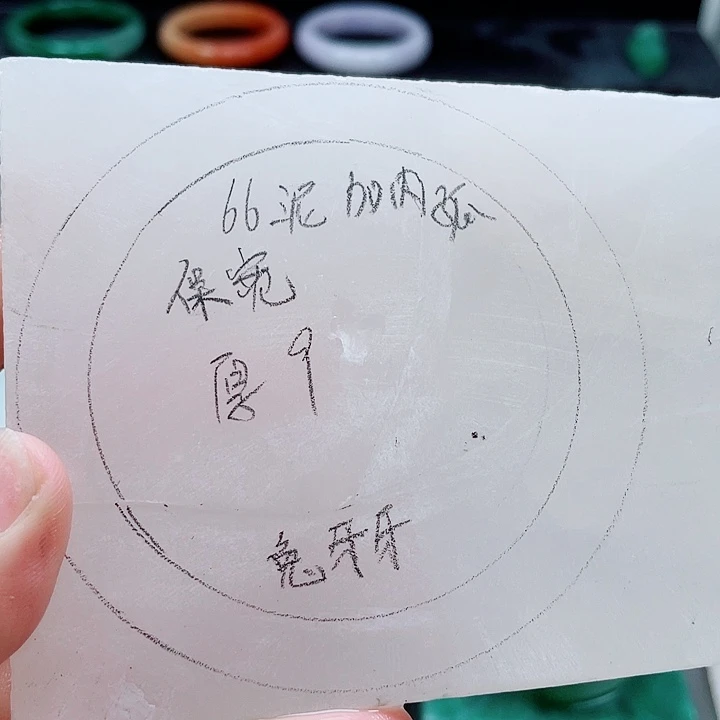 66泥 加内弧
保宽
厚9
兔牙牙